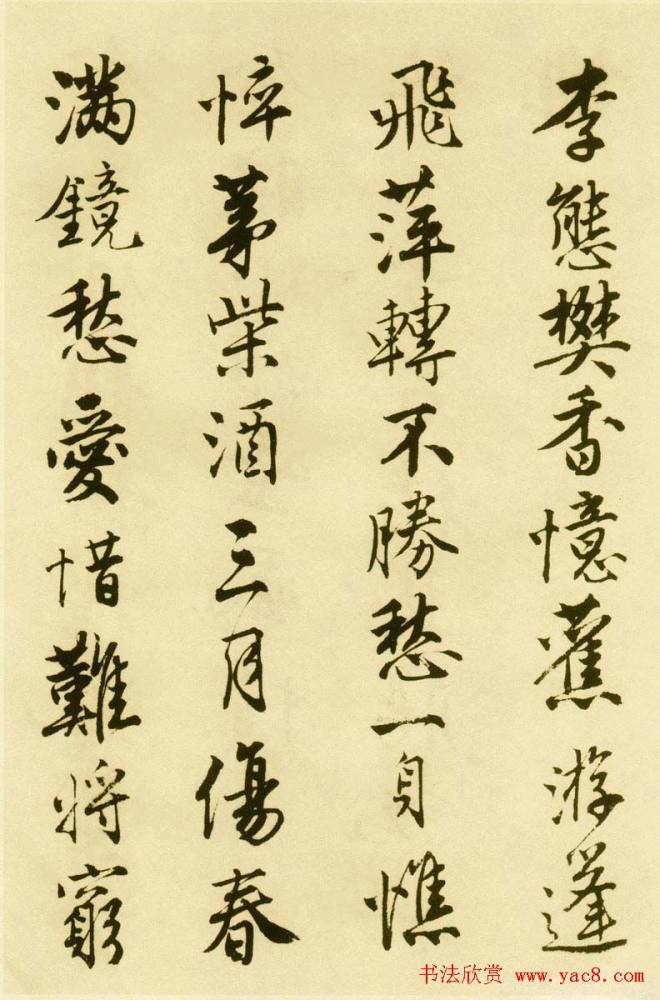 李態樊香憶舊游蓬
飛萍轉不勝愁一身憔
悴茅柴酒三月傷春
滿鏡愁愛惜難將窮
书法欣赏 www.yac8.com